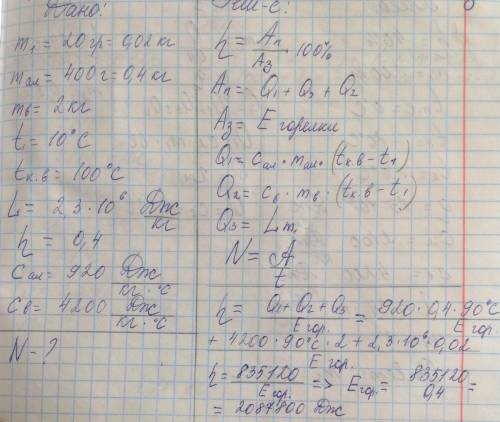 Дано:
m₁ = 20 гр = 0,02 кг
mал = 400 г = 0,4 кг
mв = 2 кг
t₁ = 10°C
tк.в = 100°C
L = 2,3 · 10⁶ Дж/кг
η = 0,4
Cал = 920 Дж/кг · °C
Cв = 4200 Дж/кг · °C
N - ?
η = Aп/Aз · 100%
Aп = Q₁ + Q₃ + Q₂
Aз = E горелки
Q₁ = cал · mал · (tк.в - t₁)
Q₂ = cв · mв · (tк.в - t₁)
Q₃ = Lm₁
N = A/t
η = Q₁ + Q₂ + Q₃/Eгор. = 920 · 0,4 · 90°C/Eгор.
+ 4200 · 90°C · 2 + 2,3 · 10⁶ · 0,02/Eгор.
η = 835120/Eгор. => Eгор. = 835120/0,4 =
= 2087800 Дж